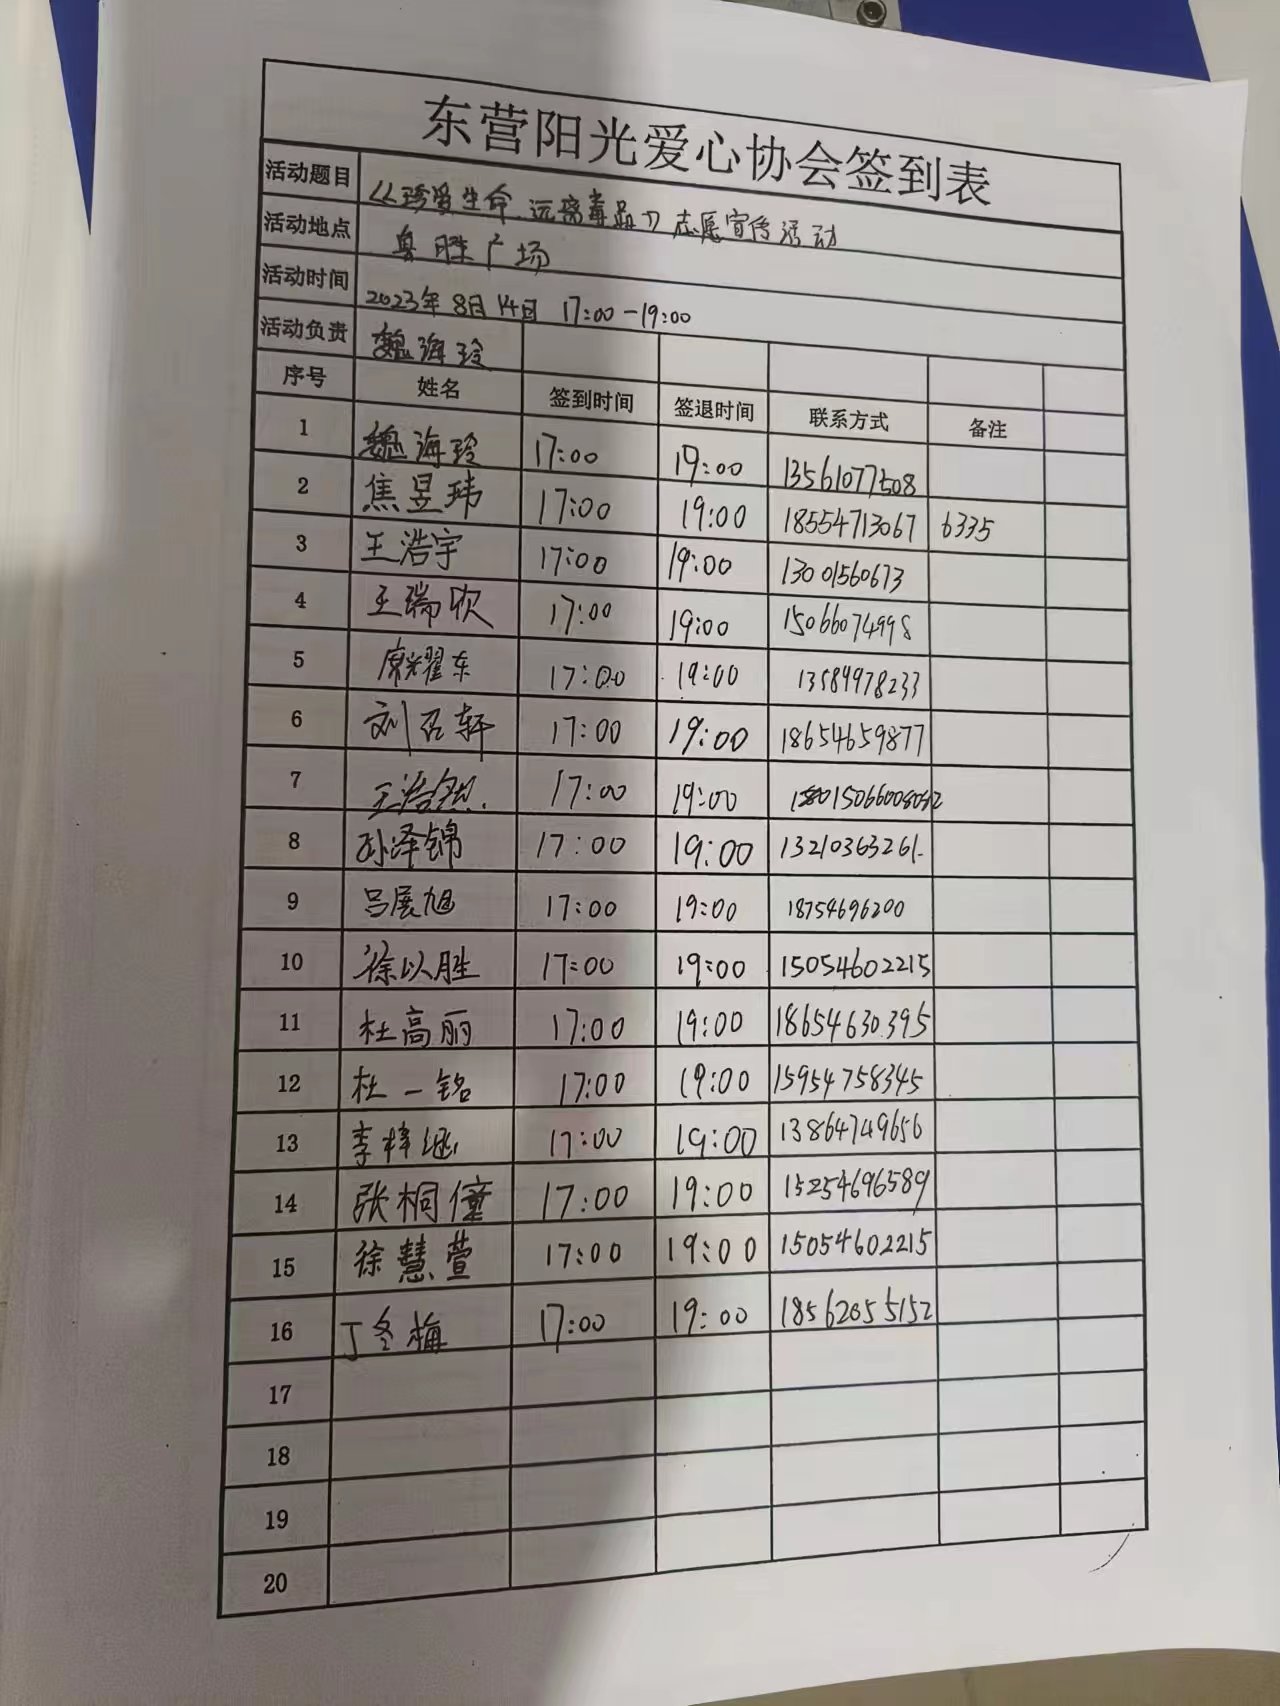 东营阳光爱心协会签到表
活动题目 《珍爱生命 远离毒品》志愿宣传活动
活动地点 广场
活动时间 2023年8月14日 17:00-19:00
活动负责 魏海玲
序号 姓名 签到时间 签退时间 联系方式 备注
1 魏海玲 17:00 19:00 13561077508
2 焦昱玮 17:00 19:00 18554713067 6335
3 王浩宇 17:00 19:00 13001560673
4 王瑞欣 17:00 19:00 15066074998
5 17:00 19:00 13589978233
6 刘召轩 17:00 19:00 18654659877
7 王浩然 17:00 19:00
8 孙泽锦 17:00 19:00 13210363261
9 吕展旭 17:00 19:00 18754696200
10 徐以胜 17:00 19:00 15054602215
11 杜高丽 17:00 19:00 18654630395
12 杜一铭 17:00 19:00 15954758345
13 李梓涵 17:00 19:00 13864749656
14 张桐僮 17:00 19:00 15254696589
15 徐慧萱 17:00 19:00 15054602215
16 丁冬梅 17:00 19:00 18562055152
17
18
19
20